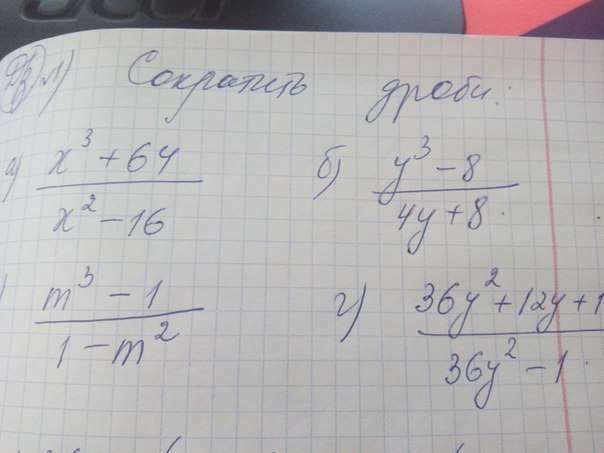 ДЗ 1) Сократить дроби:
а) x³ + 64 / x² - 16 б) y³ - 8 / 4y + 8.
) m³ - 1 / 1 - m² г) 36y² + 12y + 1 / 36y² - 1.